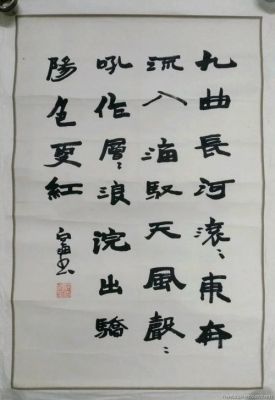 九曲長河滚〻東奔
流入海馭天風聲〻
吼作層〻浪浣出驕
陽色更紅